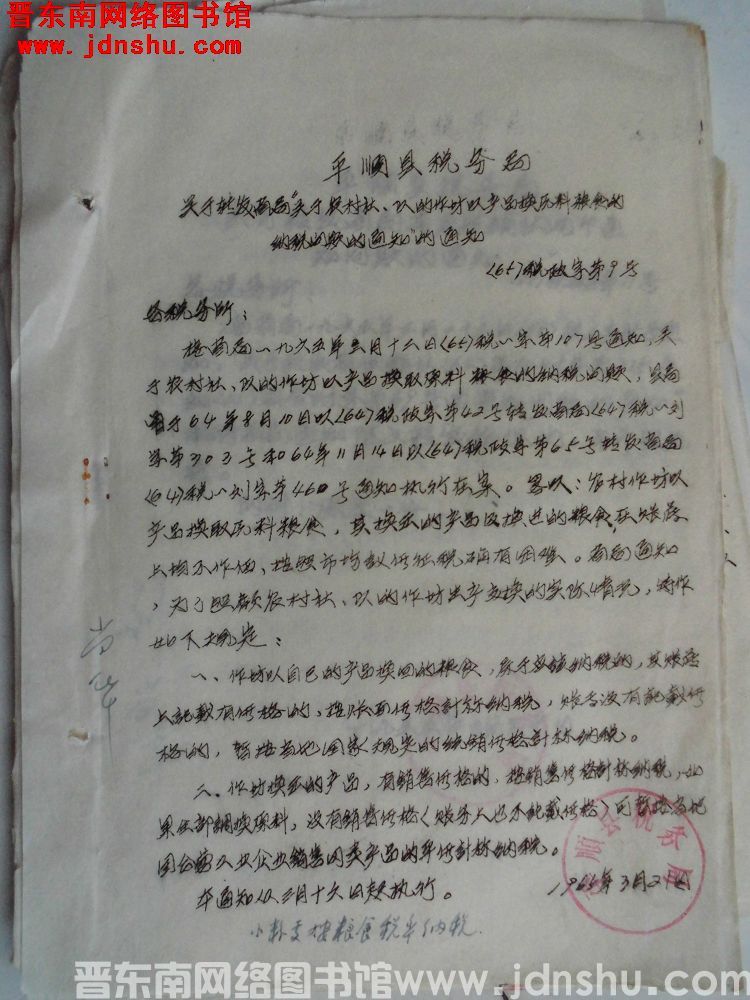 晋东南网络图书馆
www.jdnshu.com
平顺县税务局
关于转发商局"关于农村社、队的作坊以产品换原料粮食的
纳税问题的通知"的通知
〈65〉税政字第9号
各税务所:
接商局一九六五年三月十六日〈65〉税一字第107号通知,关
于农村社、队的作坊以产品换取原料粮食的纳税问题,县局
曾于64年8月10日以〈64〉税政字第42号转发商局〈64〉税一刘
字第303号和64年11月14日以〈64〉税政字第65号转发商局
〈64〉税一刘字第460号通知执行在案。
农村作坊以
产品换取原料粮食,其换出的产品及换进的粮食,在账务
上均不作价、按照市场 征税确有困难。商局通知
,为了照顾农村社、队的作坊生产交换的实际情况,特作
如下规定:
一、作坊以自己的产品换回的粮食,属于应该纳税的,其账务
上记载有价格的,按账面价格計祘纳税,账务没有記載价
格的,暂按当地国家规定的统销价格計祘纳税。
二、作坊换出的产品,有銷售价格的,按銷售价格計祘纳税,如
果全部調换原料,没有銷售价格〈账务上也不記載价格〉可暂按当地
国合营工业企业銷售同类产品的平价計祘纳税。
本通知从三月十六日起执行。
1965年3月21日
平顺县税务局
按粮食税率纳税
晋东南网络图书馆 www.jdnshu.com